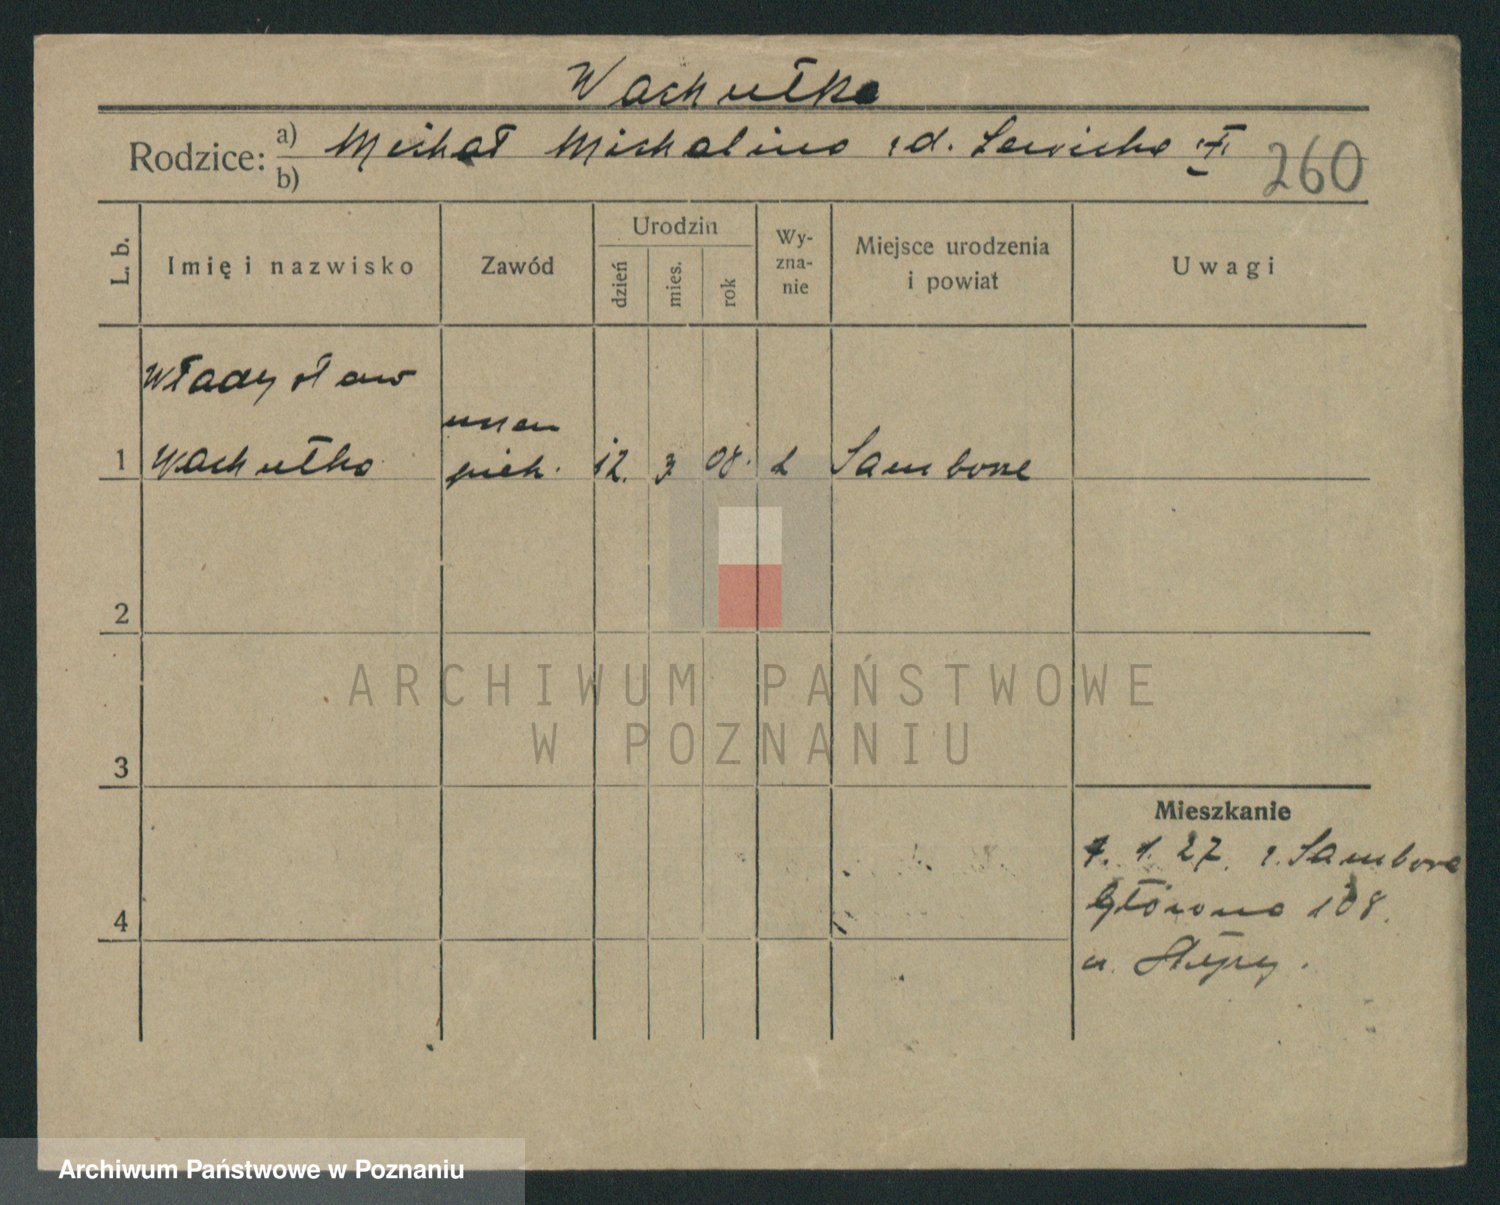 Wachułka
Rodzice: a) Michał Michalina zd. Sawicka
b)
260
L. b.
Imię i nazwisko
Zawód
Urodzin
dzień
mies.
rok
Wy-
zna-
nie
Miejsce urodzenia
i powiat
Uwagi
Władysław
uczeń
1 Wachułka piek. 12. 3 08. Sambora
2
3
4
Mieszkanie
7. 1. 27. z. Sambora
Główna 108.
u.
ARCHIWUM PAŃSTWOWE
W POZNANIU
Archiwum Państwowe w Poznaniu